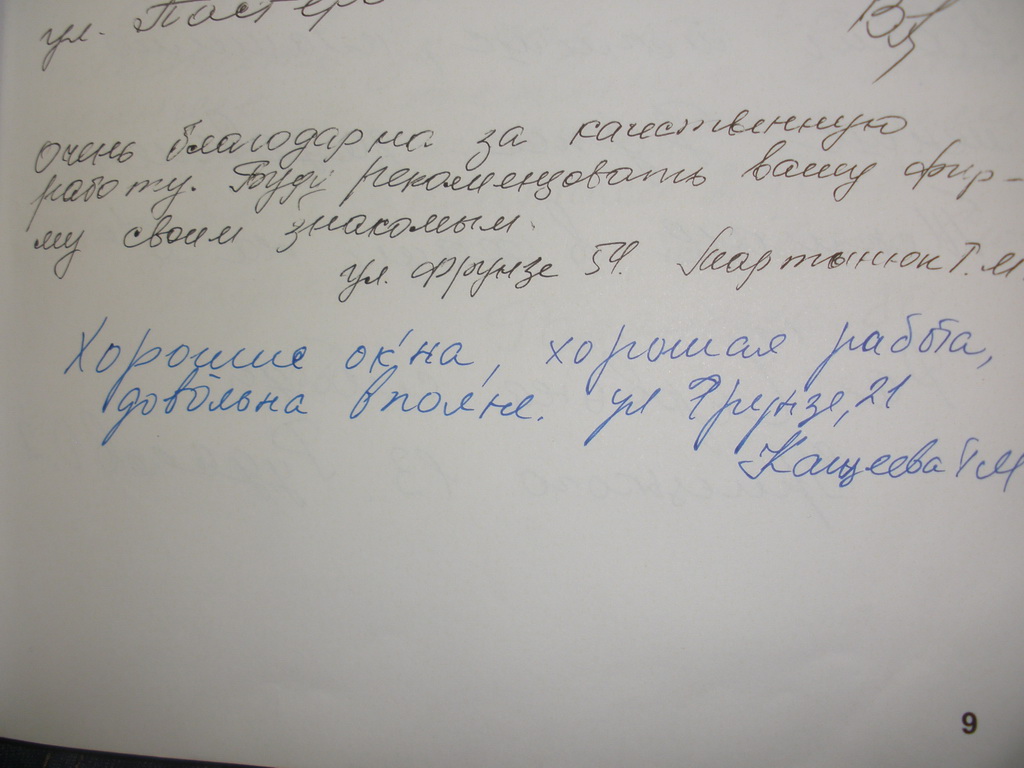 ул. Пастера
очень благодарна за качественную
работу. Буду рекомендовать вашу фир-
му своим знакомым.
ул. Фрунзе 54. Мартынюк Г. М
Хорошие окна, хорошая работа,
довольна вполне. ул Фрунзе, 21
Кащеева Г М
9